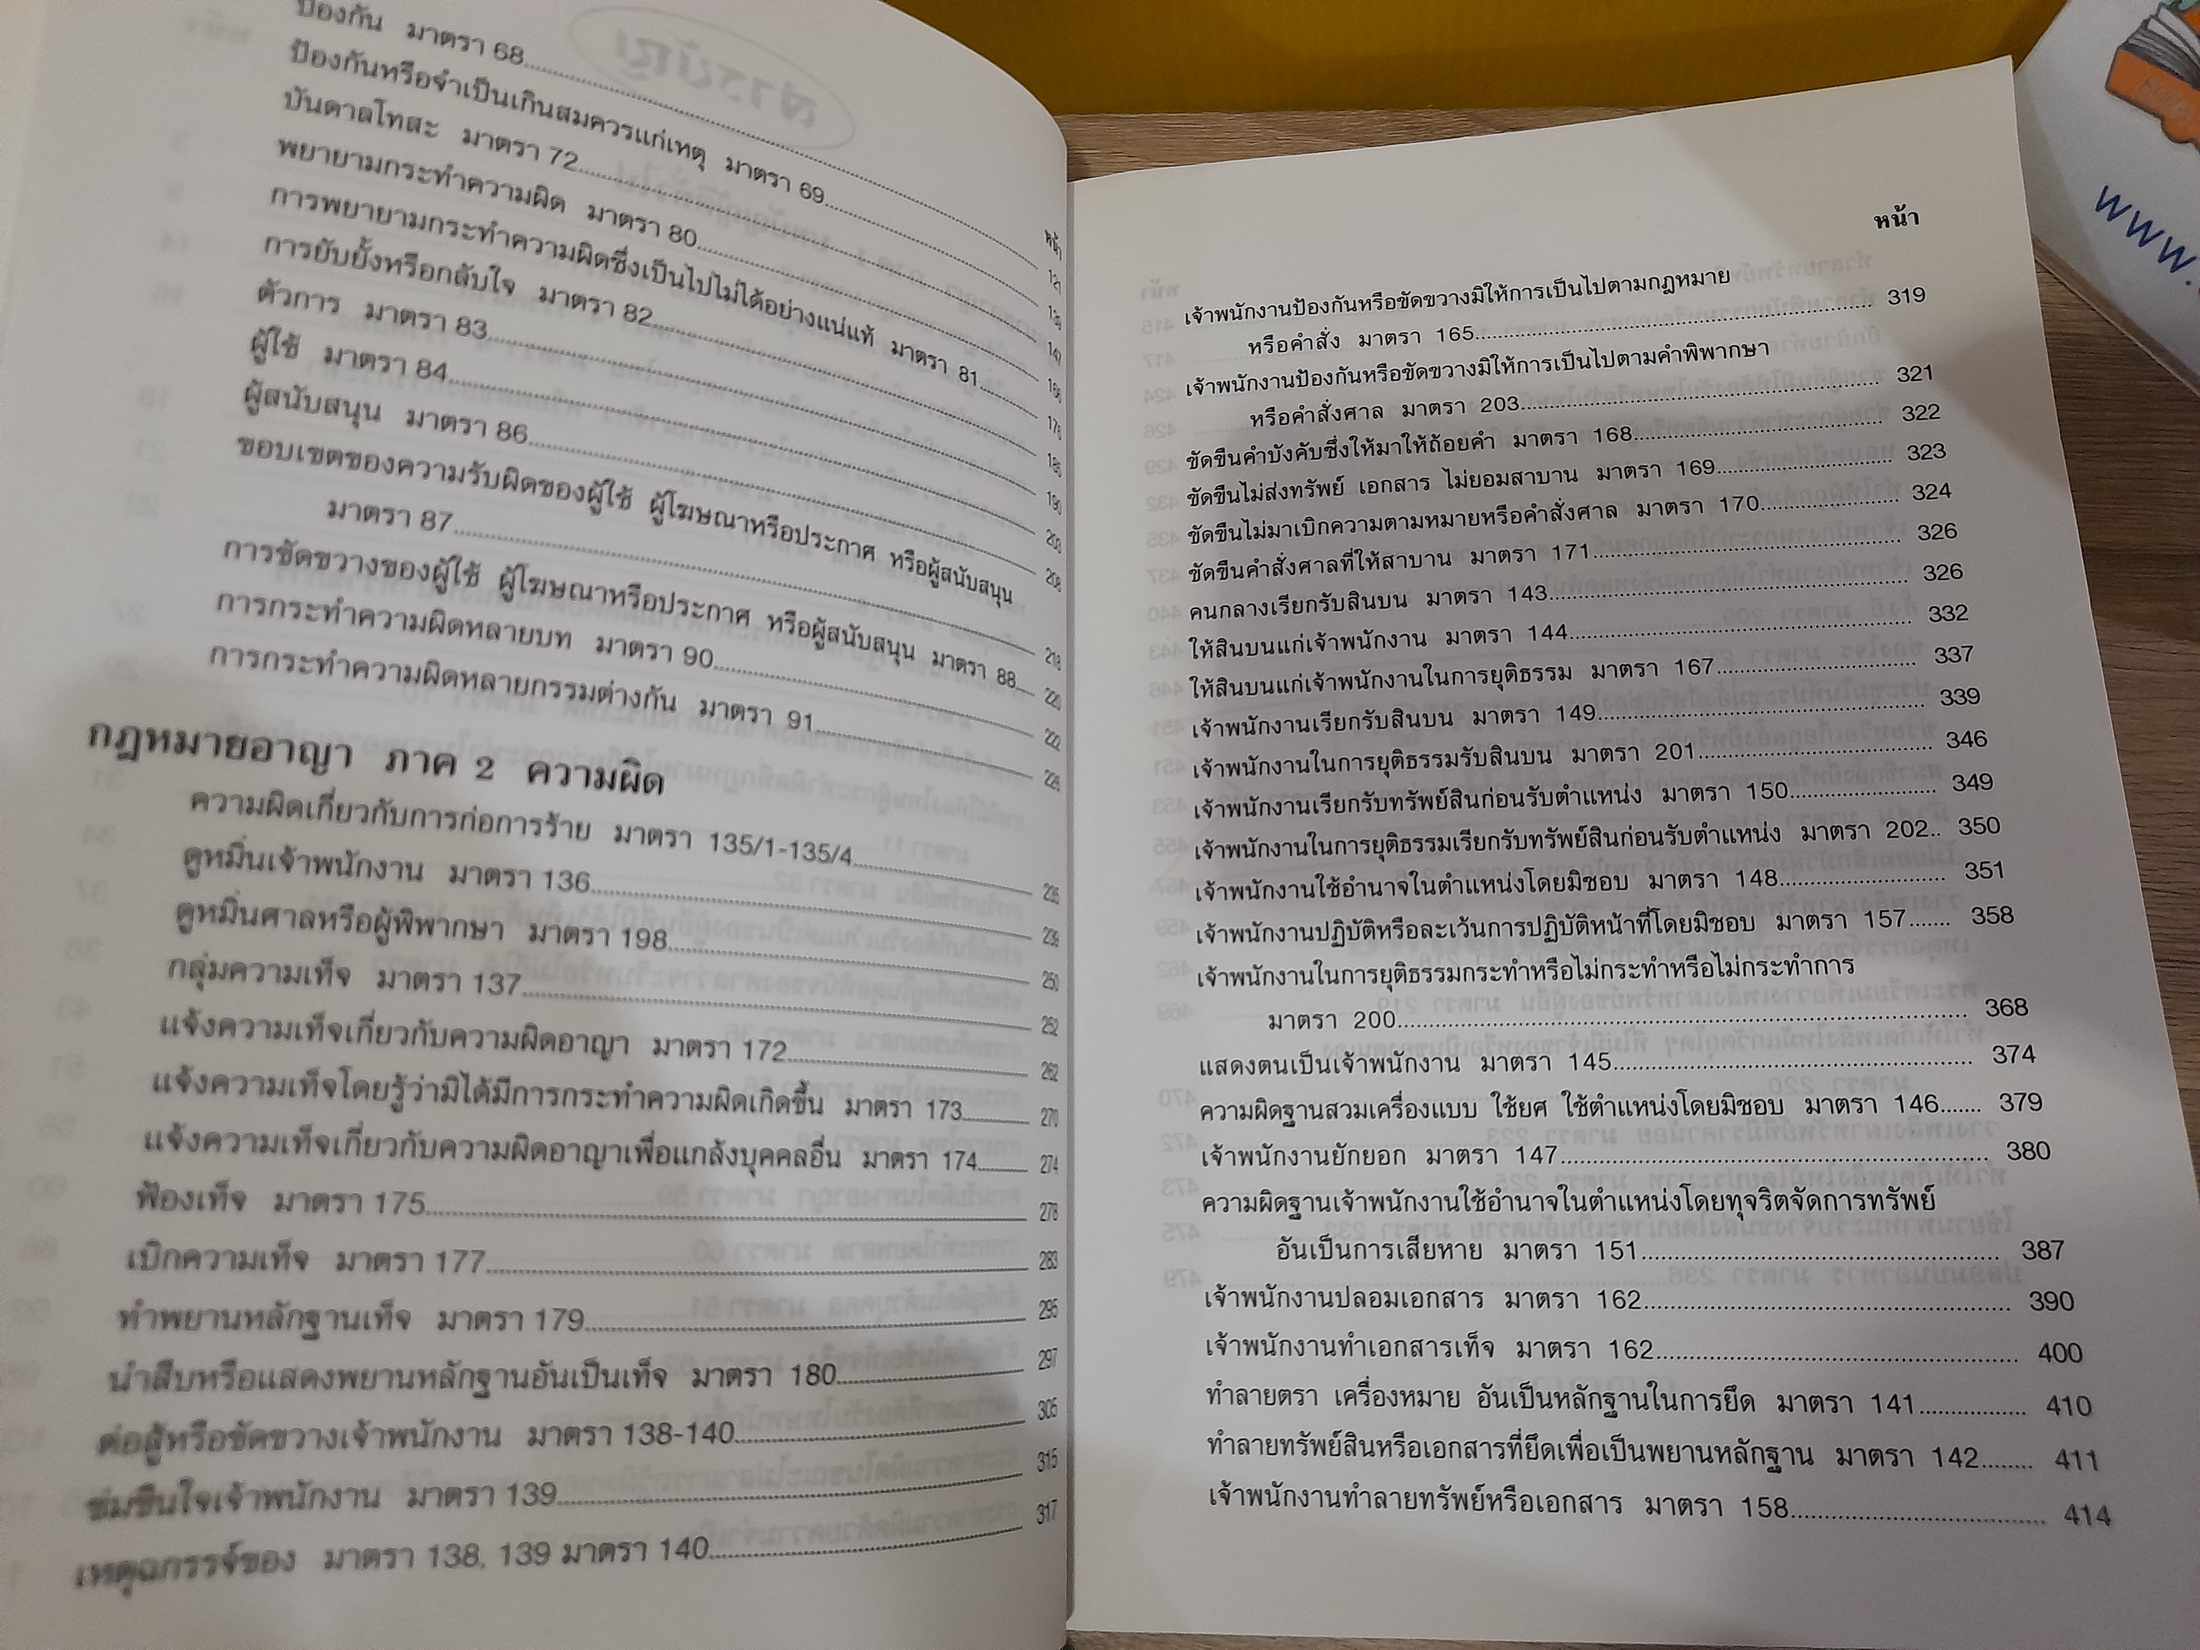 ป้องกัน มาตรา 68
ป้องกันหรือจำเป็นเกินสมควรแก่เหตุ มาตรา 69
บันดาลโทสะ มาตรา 72
พยายามกระทำความผิด มาตรา 80
การพยายามกระทำความผิดซึ่งเป็นไปไม่ได้อย่างแน่แท้ มาตรา 81
การยับยั้งหรือกลับใจ มาตรา 82
ตัวการ มาตรา 83
ผู้ใช้ มาตรา 84
ผู้สนับสนุน มาตรา 86
ขอบเขตของความรับผิดของผู้ใช้ ผู้โฆษณาหรือประกาศ หรือผู้สนับสนุน
มาตรา 87
การขัดขวางของผู้ใช้ ผู้โฆษณาหรือประกาศ หรือผู้สนับสนุน มาตรา 88
การกระทำความผิดหลายบท มาตรา 90
การกระทำความผิดหลายกรรมต่างกัน มาตรา 91
กฎหมายอาญา ภาค 2 ความผิด
ความผิดเกี่ยวกับการก่อการร้าย มาตรา 135/1-135/4
ดูหมิ่นเจ้าพนักงาน มาตรา 136 239
ดูหมิ่นศาลหรือผู้พิพากษา มาตรา 198 250
กลุ่มความเท็จ มาตรา 137 252
แจ้งความเท็จเกี่ยวกับความผิดอาญา มาตรา 172 262
แจ้งความเท็จโดยรู้ว่ามิได้มีการกระทำความผิดเกิดขึ้น มาตรา 173 270
แจ้งความเท็จเกี่ยวกับความผิดอาญาเพื่อแกล้งบุคคลอื่น มาตรา 174 274
ฟ้องเท็จ มาตรา 175 278
เบิกความเท็จ มาตรา 177 283
ทำพยานหลักฐานเท็จ มาตรา 179 295
นำสืบหรือแสดงพยานหลักฐานอันเป็นเท็จ มาตรา 180 297
ต่อสู้หรือขัดขวางเจ้าพนักงาน มาตรา 138-140 305
ข่มขืนใจเจ้าพนักงาน มาตรา 139 315
เหตุฉกรรจ์ของ มาตรา 138, 139 มาตรา 140 317
หน้า
เจ้าพนักงานป้องกันหรือขัดขวางมิให้การเป็นไปตามกฎหมาย
หรือคำสั่ง มาตรา 165 319
เจ้าพนักงานป้องกันหรือขัดขวางมิให้การเป็นไปตามคำพิพากษา
หรือคำสั่งศาล มาตรา 203 321
ขัดขืนคำบังคับซึ่งให้มาให้ถ้อยคำ มาตรา 168 322
ขัดขืนไม่ส่งทรัพย์ เอกสาร ไม่ยอมสาบาน มาตรา 169 323
ขัดขืนไม่มาเบิกความตามหมายหรือคำสั่งศาล มาตรา 170 324
ขัดขืนคำสั่งศาลที่ให้สาบาน มาตรา 171 326
คนกลางเรียกรับสินบน มาตรา 143 326
ให้สินบนแก่เจ้าพนักงาน มาตรา 144 332
ให้สินบนแก่เจ้าพนักงานในการยุติธรรม มาตรา 167 337
เจ้าพนักงานเรียกรับสินบน มาตรา 149 339
เจ้าพนักงานในการยุติธรรมรับสินบน มาตรา 201 346
เจ้าพนักงานเรียกรับทรัพย์สินก่อนรับตำแหน่ง มาตรา 150 349
เจ้าพนักงานในการยุติธรรมเรียกรับทรัพย์สินก่อนรับตำแหน่ง มาตรา 202.. 350
เจ้าพนักงานใช้อำนาจในตำแหน่งโดยมิชอบ มาตรา 148 351
เจ้าพนักงานปฏิบัติหรือละเว้นการปฏิบัติหน้าที่โดยมิชอบ มาตรา 157 358
เจ้าพนักงานในการยุติธรรมกระทำหรือไม่กระทำหรือไม่กระทำการ
มาตรา 200 368
แสดงตนเป็นเจ้าพนักงาน มาตรา 145 374
ความผิดฐานสวมเครื่องแบบ ใช้ยศ ใช้ตำแหน่งโดยมิชอบ มาตรา 146 379
เจ้าพนักงานยักยอก มาตรา 147 380
ความผิดฐานเจ้าพนักงานใช้อำนาจในตำแหน่งโดยทุจริตจัดการทรัพย์
อันเป็นการเสียหาย มาตรา 151 387
เจ้าพนักงานปลอมเอกสาร มาตรา 162 390
เจ้าพนักงานทำเอกสารเท็จ มาตรา 162 400
ทำลายตรา เครื่องหมาย อันเป็นหลักฐานในการยึด มาตรา 141 410
ทำลายทรัพย์สินหรือเอกสารที่ยึดเพื่อเป็นพยานหลักฐาน มาตรา 142 411
เจ้าพนักงานทำลายทรัพย์หรือเอกสาร มาตรา 158 414
www.